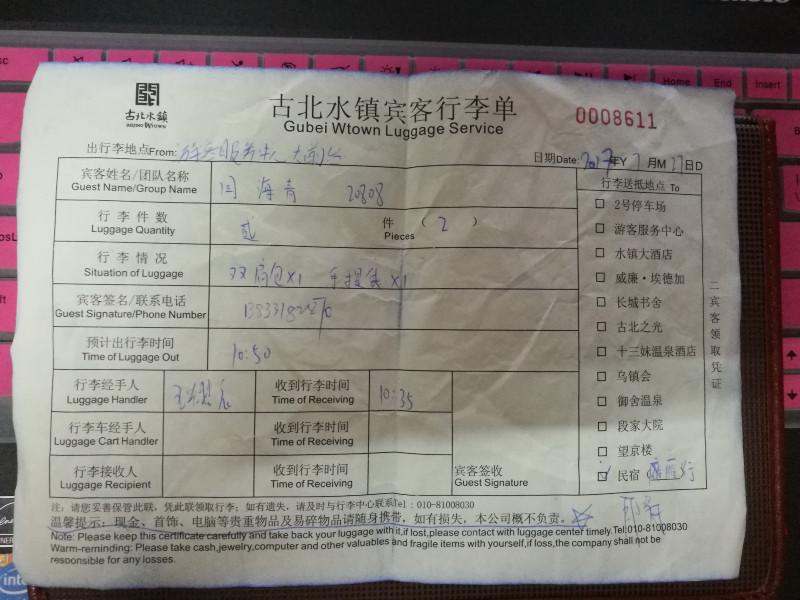 古北水镇
GUBEI WTOWN
古北水镇宾客行李单
Gubei Wtown Luggage Service
0008611
出行李地点From:
日期Date: 2017年Y 7月M 27日D
宾客姓名/团队名称
Guest Name/Group Name
闫海青 20808
行李件数
Luggage Quantity
贰 件 Pieces ( 2 )
行李情况
Situation of Luggage
双肩包X1 手提袋X1
宾客签名/联系电话
Guest Signature/Phone Number
预计出行李时间
Time of Luggage Out
10:50
行李经手人
Luggage Handler
收到行李时间
Time of Receiving
10:35
行李车经手人
Luggage Cart Handler
收到行李时间
Time of Receiving
行李接收人
Luggage Recipient
收到行李时间
Time of Receiving
宾客签收
Guest Signature
行李送抵地点 To
2号停车场
游客服务中心
水镇大酒店
威廉·埃德加
长城书舍
古北之光
十三妹温泉酒店
乌镇会
御舍温泉
段家大院
望京楼
民宿
二宾客领取凭证
注：请您妥善保管此联，凭此联领取行李；如有遗失，请及时与行李中心联系Tel：010-81008030
温馨提示：现金、首饰、电脑等贵重物品及易碎物品请随身携带，如有损失，本公司概不负责。
Note: Please keep this certificate carefully and take back your luggage with it,if lost,please contact with luggage center timely.Tel:010-81008030
Warm-reminding: Please take cash,jewelry,computer and other valuables and fragile items with yourself,if loss,the company shall not be
responsible for any losses.
Home
End
Insert
intel